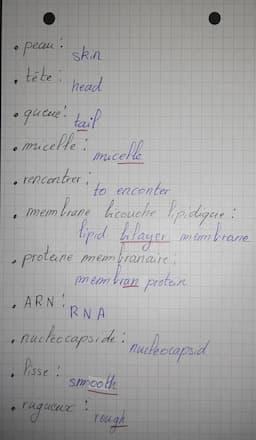 • peau :
skin
• tête :
head
• queue :
tail
• micelle :
micelle
• rencontrer :
to enconter
• membrane bicouche lipidique :
lipid bilayer membrane
• protéine membranaire :
membran protein
• ARN :
RNA
• nucléocapside :
nucleocapsid
• lisse :
smooth
• rugueux :
rough